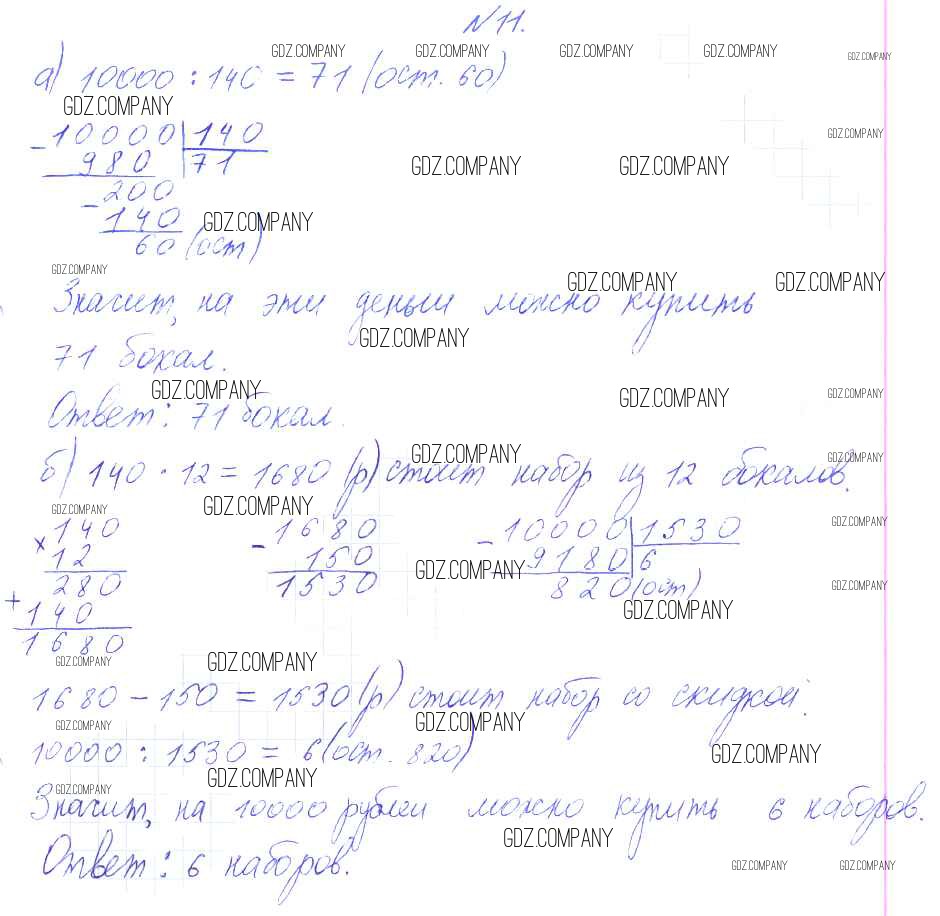 №11.
а) 10000 : 140 = 71 (ост. 60)
GDZ.COMPANY GDZ.COMPANY GDZ.COMPANY GDZ.COMPANY GDZ.COMPANY
GDZ.COMPANY
- 10000 | 140
980 | 71
GDZ.COMPANY
GDZ.COMPANY GDZ.COMPANY
- 200
140 GDZ.COMPANY
60 (ост)
GDZ.COMPANY
GDZ.COMPANY GDZ.COMPANY
Значит, на эти деньги можно купить
GDZ.COMPANY
71 бокал.
GDZ.COMPANY GDZ.COMPANY GDZ.COMPANY
Ответ: 71 бокал.
GDZ.COMPANY GDZ.COMPANY
б) 140 · 12 = 1680 (р) стоит набор из 12 бокалов.
GDZ.COMPANY GDZ.COMPANY
× 140 - 1680 - 10000 | 1530 GDZ.COMPANY
12 150 9180 | 6
280 1530 GDZ.COMPANY 820 (ост) GDZ.COMPANY
+ 140 GDZ.COMPANY
1680
GDZ.COMPANY GDZ.COMPANY
1680 - 150 = 1530 (р) стоит набор со скидкой.
GDZ.COMPANY GDZ.COMPANY
10000 : 1530 = 6 (ост. 820) GDZ.COMPANY
GDZ.COMPANY GDZ.COMPANY
Значит, на 10000 рублей можно купить 6 наборов.
GDZ.COMPANY
Ответ: 6 наборов.
GDZ.COMPANY GDZ.COMPANY